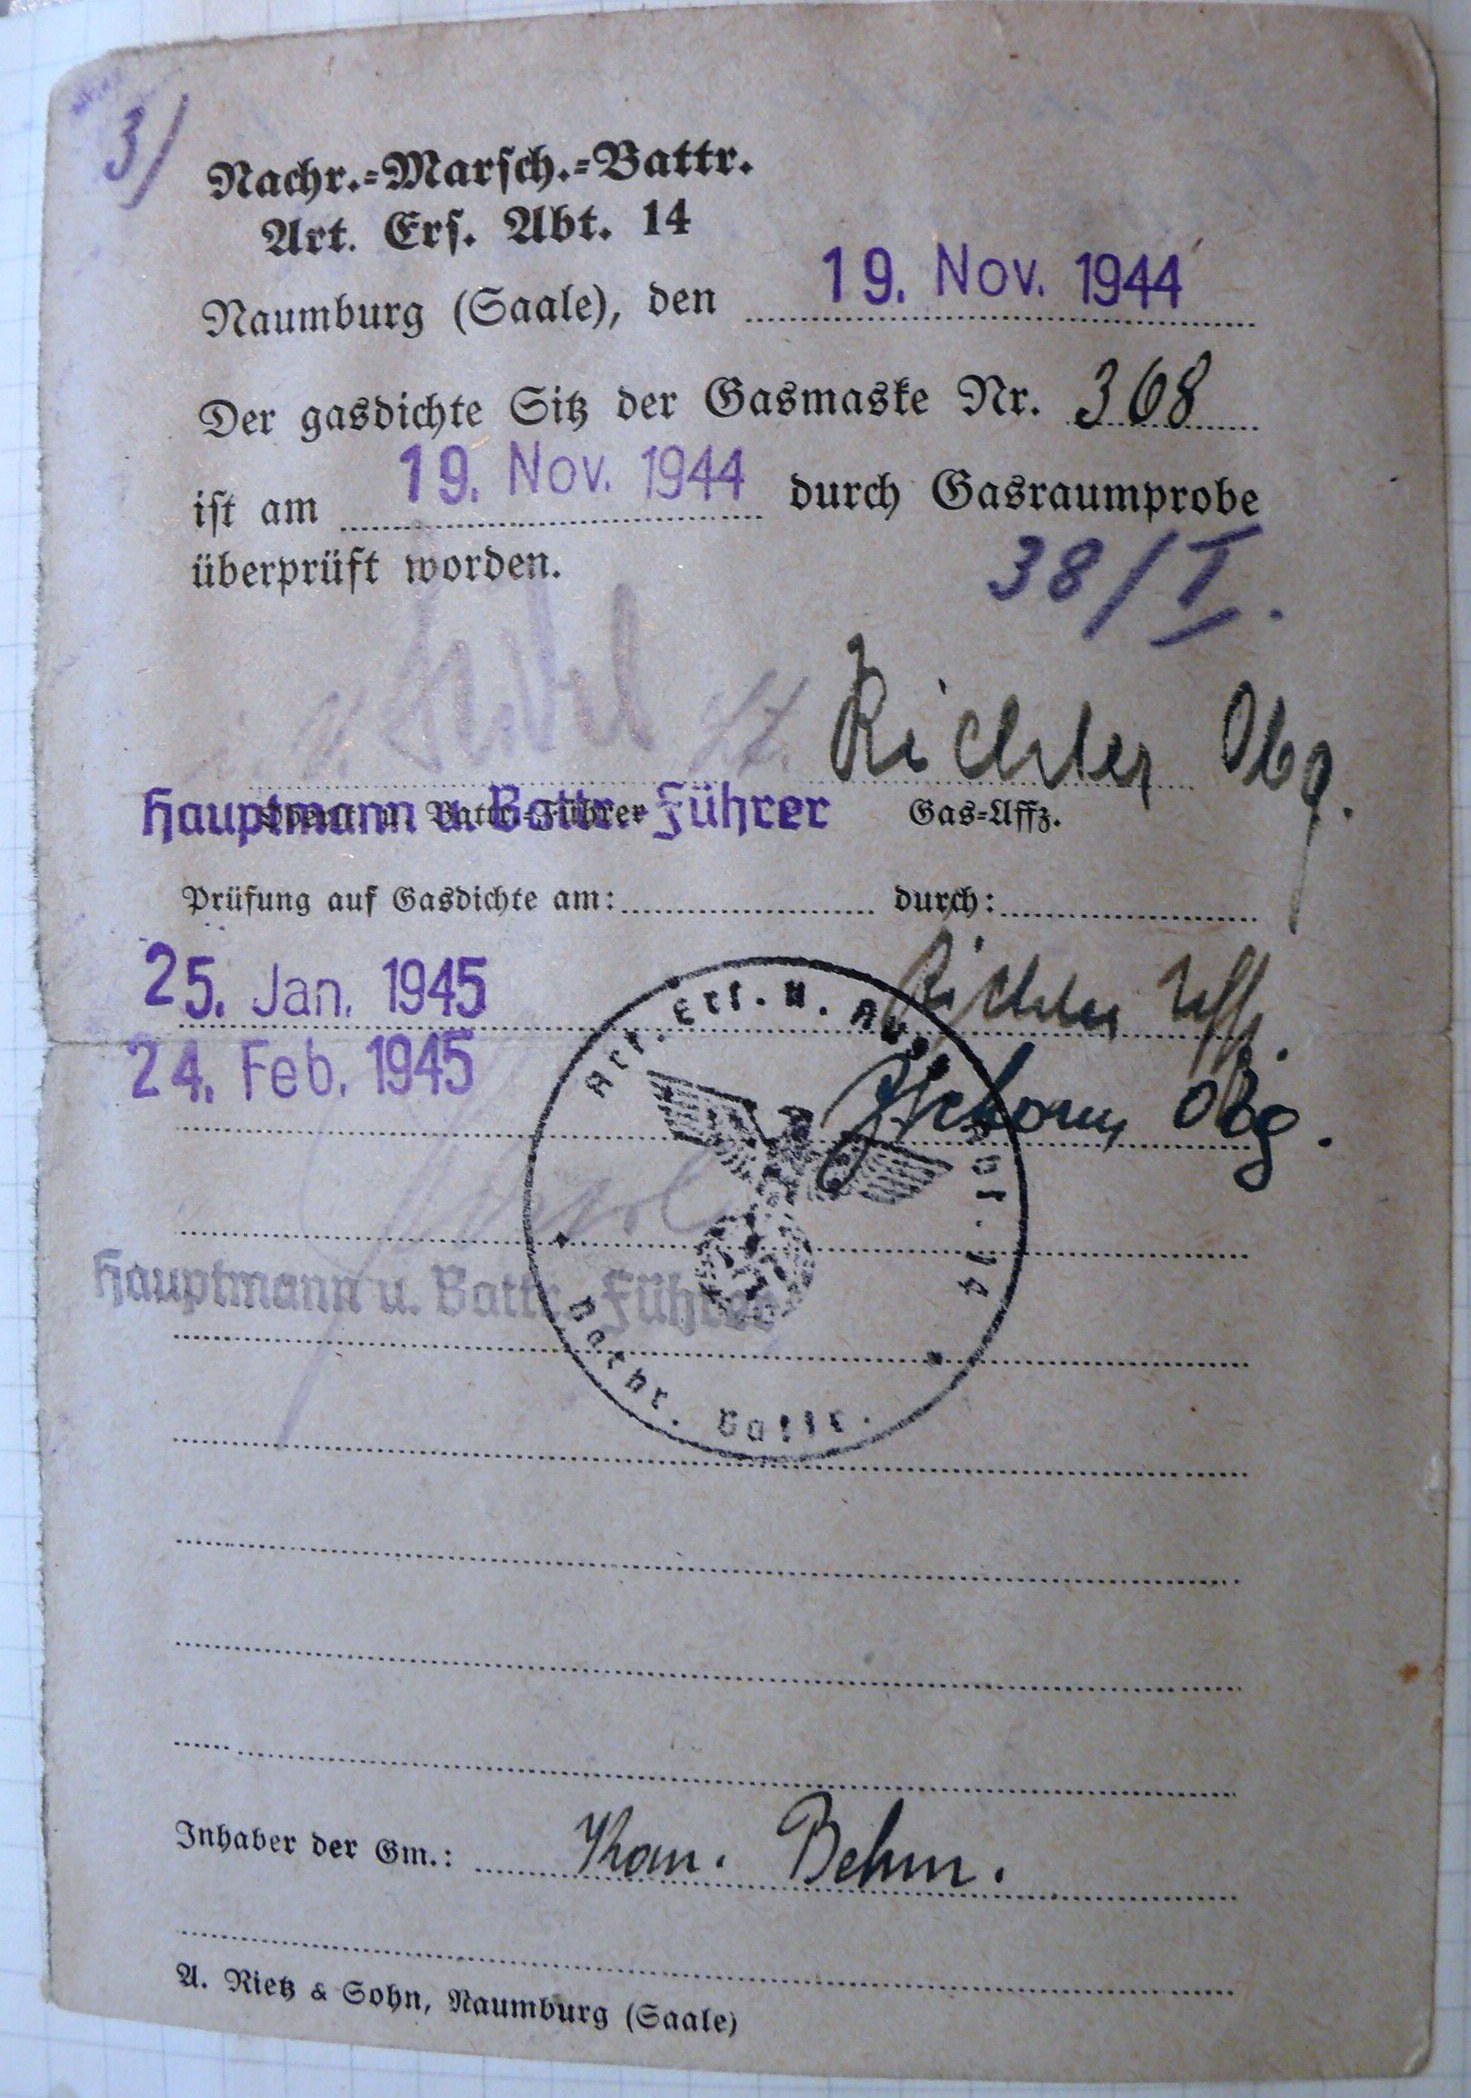 3/
Nachr.-Marsch.-Battr.
Art. Ers. Abt. 14
Naumburg (Saale), den 19. Nov. 1944
Der gasdichte Sitz der Gasmaske Nr. 368
ist am 19. Nov. 1944 durch Gasraumprobe
überprüft worden.
38/I.
Richter Obg.
Hauptmann u. Battr.-Führer
u. Battr.-Führer Gas-Uffz.
Prüfung auf Gasdichte am: durch:
25. Jan. 1945 Richter Uffz.
24. Feb. 1945 Obg.
Art. Ers. u. Ausb. Abt. 14
Hauptmann u. Battr.-Führer
Nachr. Battr.
Inhaber der Gm.: Kan. Behm.
A. Rietz & Sohn, Naumburg (Saale)